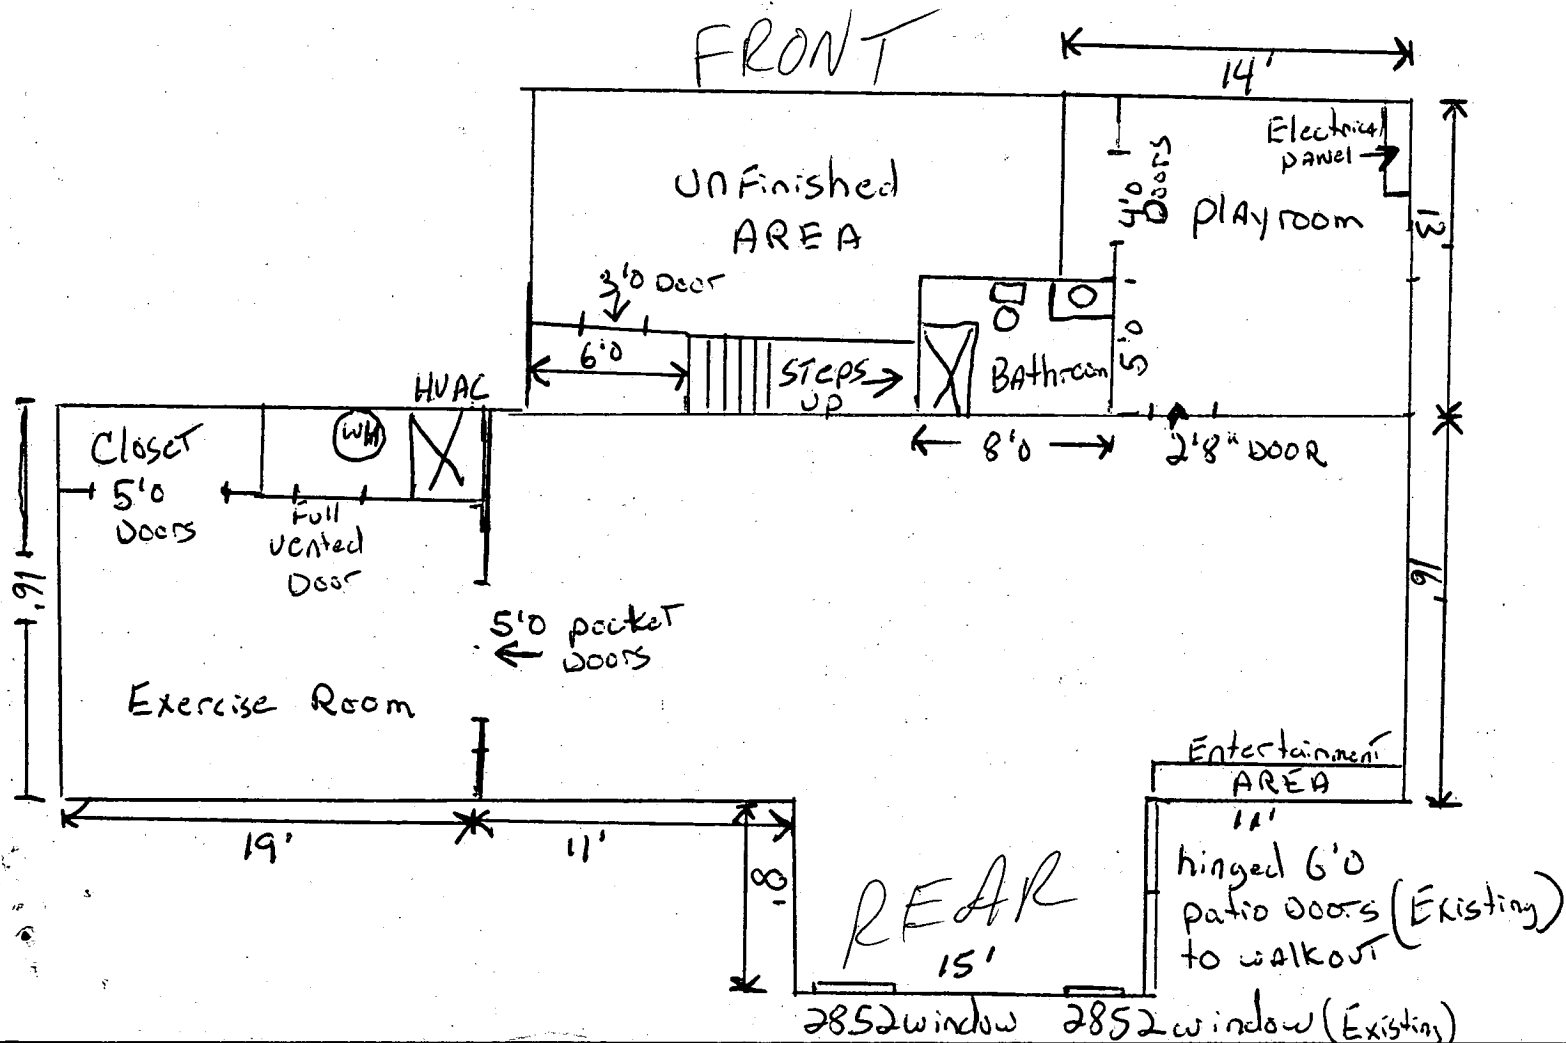 FRONT
14'
Electrical
panel
UnFinished
AREA
4'0
Doors
Playroom
13'
3'0 Door
6'0
STEPS
UP
Bathroom
5'0
HVAC
Closet
WH
5'0
Doors
Full
vented
Door
8'0
2'8" DOOR
16'
16'
5'0 pocket
Doors
Exercise Room
Entertainment
AREA
19'
11'
11'
8'
hinged 6'0
patio Doors (Existing)
to walkout
REAR
15'
2852 window
2852 window (Existing)